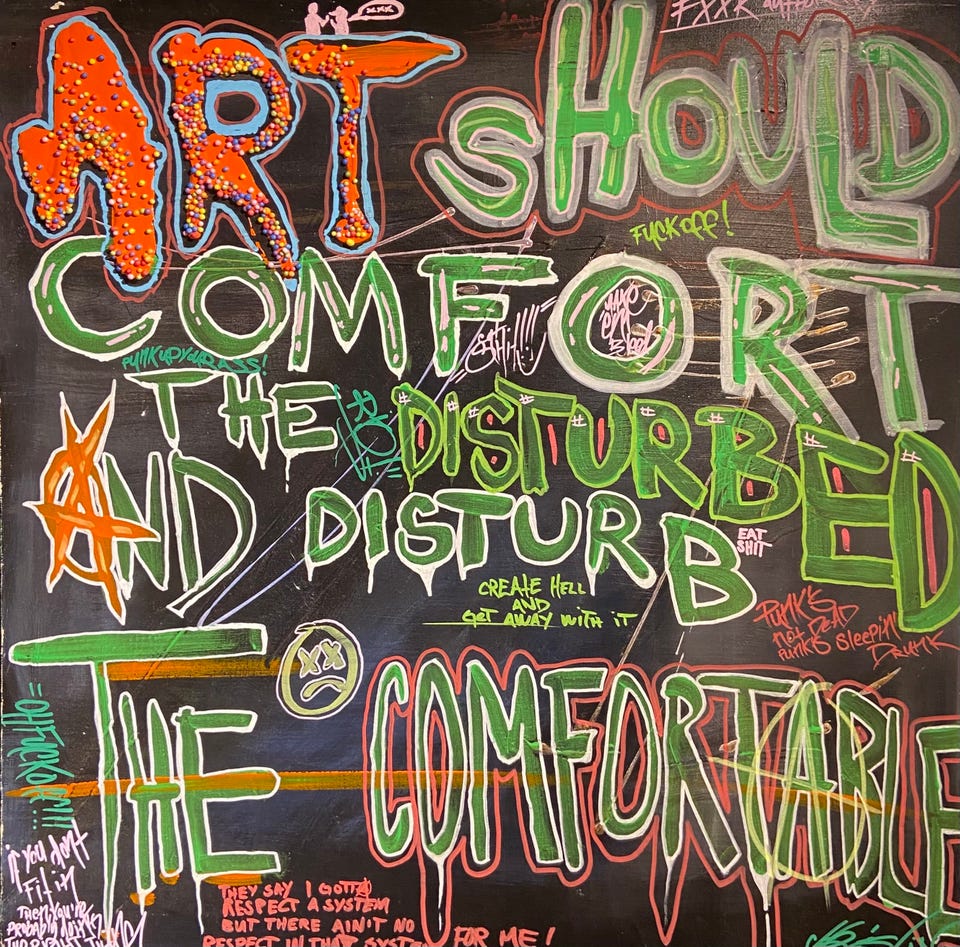 xxx
ART SHOULD
FUCK OFF!
COMFORT
SHit!!!!
PUNK UP YOUR ASS!
THE DISTURBED
AND DISTURB
EAT
SHIT
CREATE HELL
AND
GET AWAY WITH IT
PUNK'S
NOT DEAD
PUNKS SleepiN!
DRUNK
THE COMFORTABLE
if you don't
Fit in
THEN YOU'RE
PROBABLY DOING
THE RIGHT THING
THEY SAY I GOTTA
RESPECT A SYSTEM
BUT THERE AIN'T NO
RESPECT IN THAT SYSTEM FOR ME!